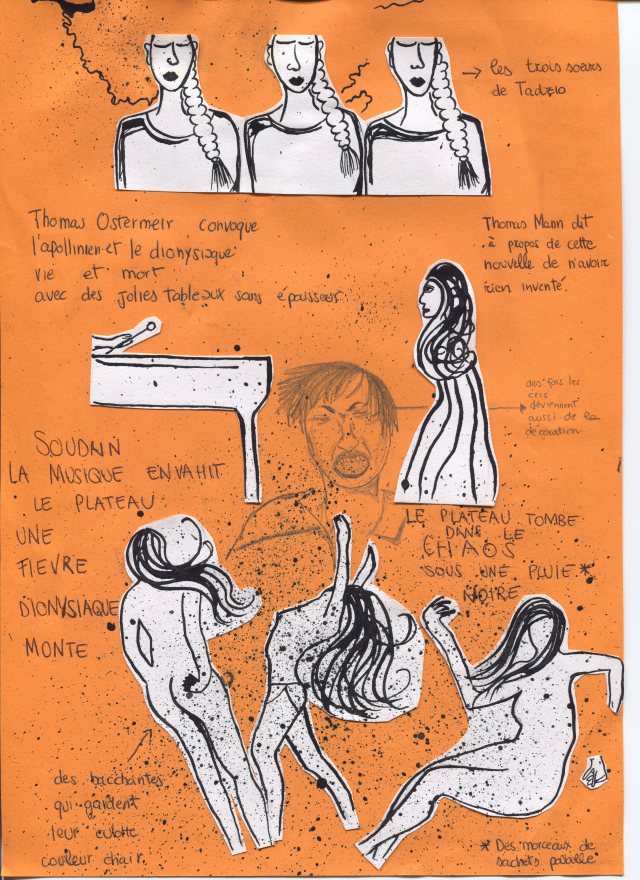 → les trois soeurs
de Tadzio
Thomas Ostermeir convoque
l'apollinien et le dionysiaque
vie et mort
avec des jolies tableaux sans épaisseur
Thomas Mann dit
à propos de cette
nouvelle de n'avoir
rien inventé.
des fois les
cris
deviennent
aussi de la
décoration
SOUDAIN
LA MUSIQUE ENVAHIT
LE PLATEAU
UNE
FIEVRE
DIONYSIAQUE
MONTE
LE PLATEAU TOMBE
DANS LE
CHAOS
SOUS UNE PLUIE*
NOIRE
des bacchantes
qui gardent
leur culotte
couleur chair.
* Des morceaux de
sachets poubelle